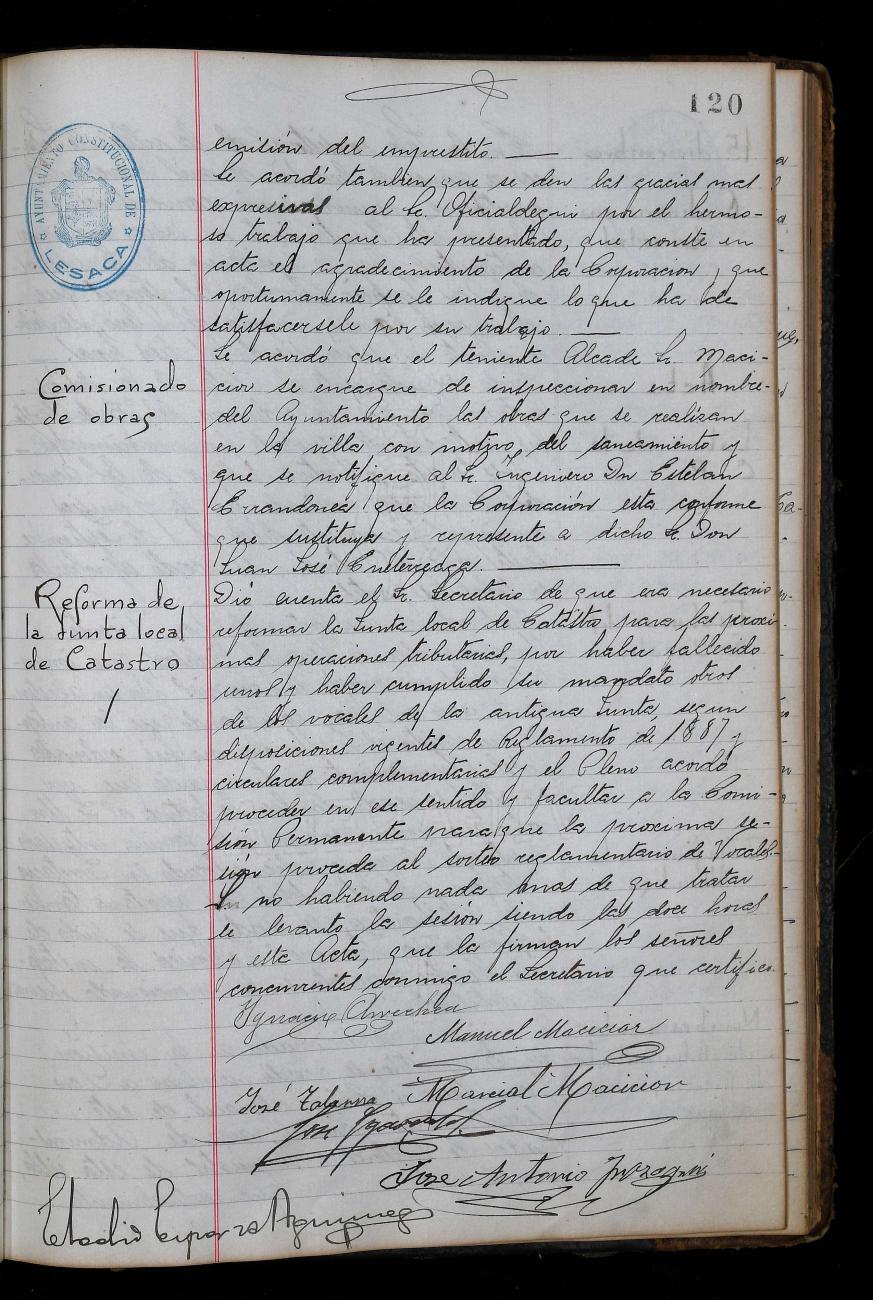 120
AYUNTAMIENTO CONSTITUCIONAL DE
LESACA
emisión del emprestito.
Se acordó tambien que se den las gracias mas
expresivas al Sr. Oficialdegui por el hermo-
so trabajo que ha presentado, que conste en
acta el agradecimiento de la Corporacion, y que
oportunamente se le indique lo que ha de
satisfacersele por su trabajo.
Comisionado
de obras
Se acordó que el teniente Alcade Sr. Maci-
cior se encargue de inspeccionar en nombre
del Ayuntamiento las obras que se realizan
en la villa con motivo del saneamiento y
que se notifique al Sr. Ingeniero Dn Esteban
Errandonea que la Corporación esta conforme
que sustituya y represente a dicho Sr. Don
Juan José
Reforma de
la Junta local
de Catastro
Dió cuenta el Sr. Secretario de que era necesario
reformar la Junta local de Catastro para las proxi-
mas operaciones tributarias, por haber fallecido
unos y haber cumplido su mandato otros
de los vocales de la antigua Junta, segun
disposiciones vigentes de Reglamento de 1887 y
circulares complementarias y el Pleno acordó
proceder en ese sentido y facultar a la Comi-
sión Permanente para que la proxima se-
sión proceda al sorteo reglamentario de Vocales.
Y no habiendo nada mas de que tratar
se levanto la sesión siendo las doce horas
y esta Acta, que la firman los señores
concurrentes conmigo el Secretario que certifico.
Ygnacio Arrechea
Manuel Macicior
José
Marcial Macicior
José
Jose Antonio
Eladio Esparza Aguinaga